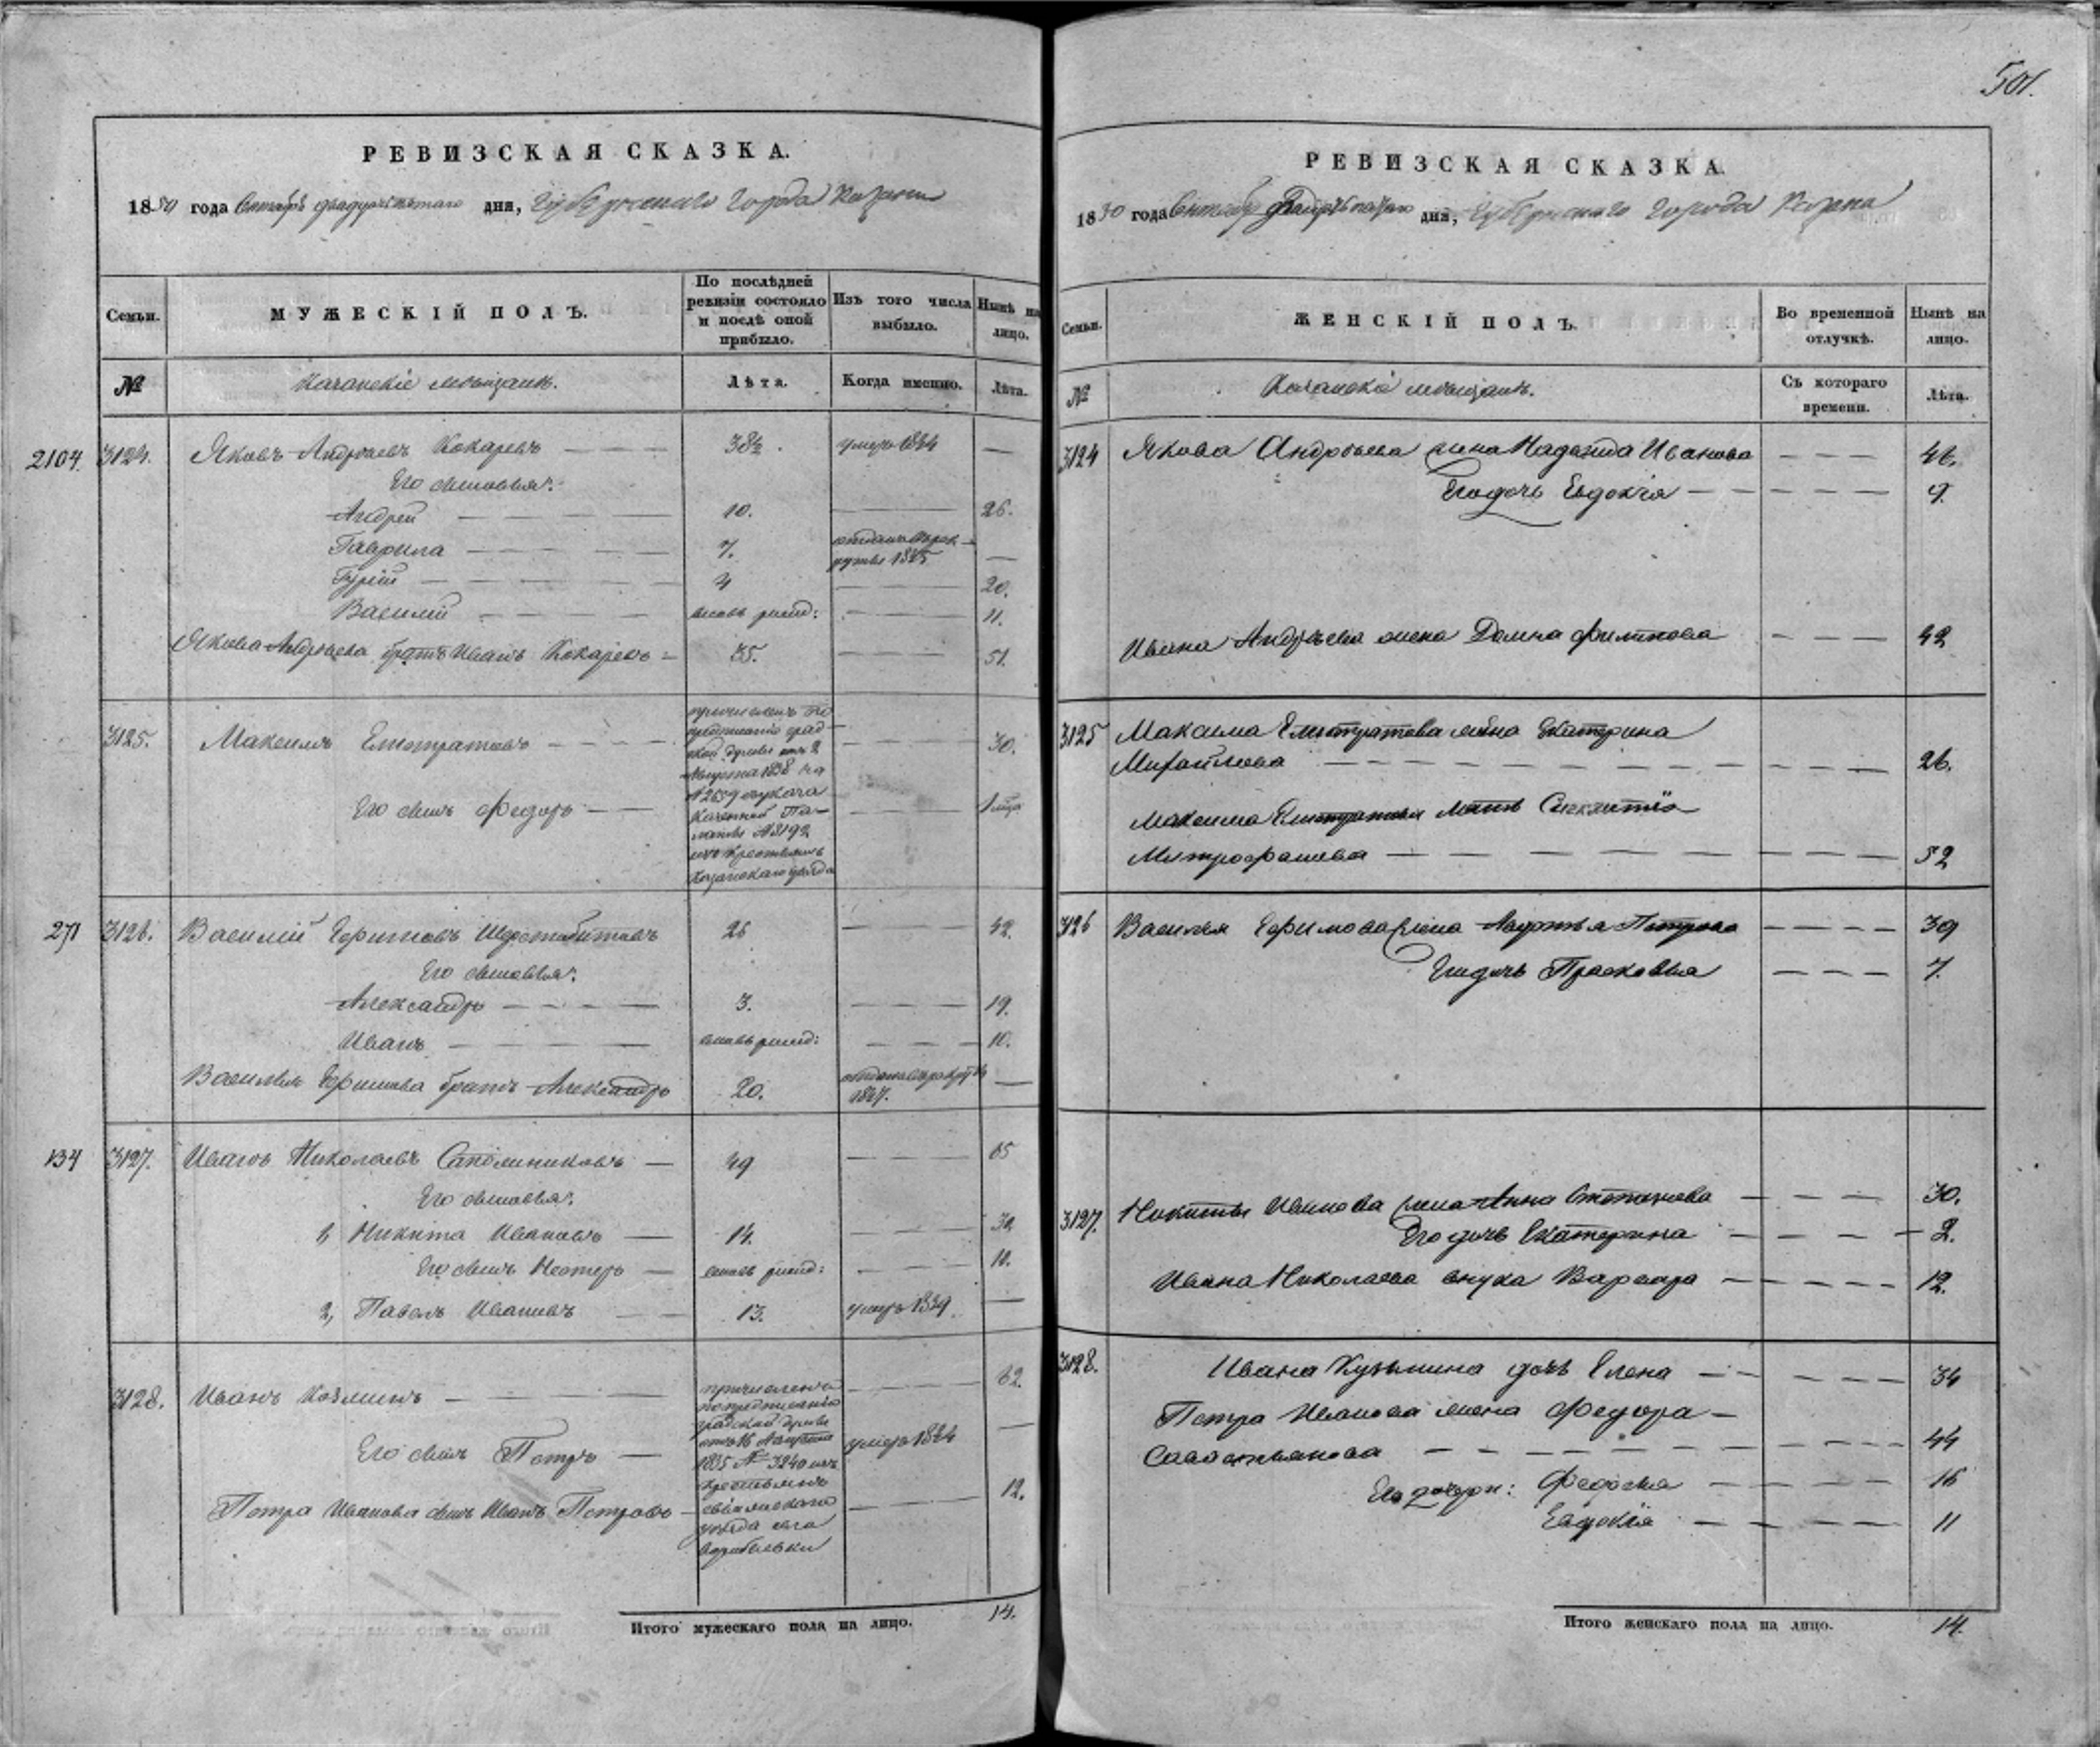 501.
РЕВИЗСКАЯ СКАЗКА.
1850 года Октября двадцать пятаго дня, Губернскаго города Казани
Семьи.
МУЖЕСКІЙ ПОЛЪ.
По послѣдней ревизіи состояло и послѣ оной прибыло.
Изъ того числа выбыло.
Нынѣ на лицо.
№
Казанскіе мѣщане.
Лѣта.
Когда именно.
Лѣта.
2104 3124. Яковъ Андреевъ Кокаревъ 38½ умеръ 1844 —
Его сыновья:
Андрей 10. 26.
Гаврила 7. отданъ въ рекруты 1845 —
Гурій 4 20.
Василій вновь рожд: 11.
Якова Андреева братъ Иванъ Кокаревъ 35. 51.
3125. Максимъ Елистратовъ 30.
Его сынъ Федоръ 1 мѣсъ
причисленъ по
предписанію град-
ской думы отъ 2
Августа 1838 на
№ 2659 указа
Казенной Па-
латы № 3192
изъ крестьянъ
Казанскаго уѣзда
271 3126. Василій Ефимовъ 26 42.
Его сыновья:
Александръ 3. 19.
Иванъ вновь рожд: 10.
Василья Ефимова братъ Александръ 20. отданъ въ рекруты 1847. —
134 3127. Иванъ Николаевъ Сапожниковъ 49 65
Его сыновья:
1, Никита Ивановъ 14. 30.
Его сынъ Несторъ вновь рожд: 10.
2, Павелъ Ивановъ 13. умеръ 1839. —
3128. Иванъ Козминъ 62.
Его сынъ Петръ умеръ 1844 —
Петра Иванова сынъ Иванъ Петровъ 12.
причислены
по предписанію
градской думы
отъ 16 Августа
1835 № 3240 изъ
крестьянъ
свіяжскаго
уѣзда села
Итого мужескаго пола на лицо. 14.
РЕВИЗСКАЯ СКАЗКА.
1850 года Октября двадцать пятаго дня, Губернскаго города Казани
Семьи.
ЖЕНСКІЙ ПОЛЪ.
Во временной отлучкѣ.
Нынѣ на лицо.
№
Казанскіе мѣщане.
Съ котораго времени.
Лѣта.
3124 Якова Андреева жена Надежда Иванова 46.
Его дочь Евдокія 9.
Ивана Андреева жена Домна Филипова 42
3125 Максима Елистратова жена Екатерина
Михайлова 26.
Максима Елистратова мать
Митрофанова 52
3126 Василья Ефимова жена Марфа Петрова 39
Его дочь Прасковья 7.
3127. Никиты Иванова жена Анна Степанова 30.
Его дочь Екатерина 2.
Ивана Николаева внука Варвара 12.
3128. Ивана Кузьмина дочь Елена 34
Петра Иванова жена Федора
Савастьянова 44
Его дочери: Федосья 16
Евдокія 11
Итого женскаго пола на лицо. 14.